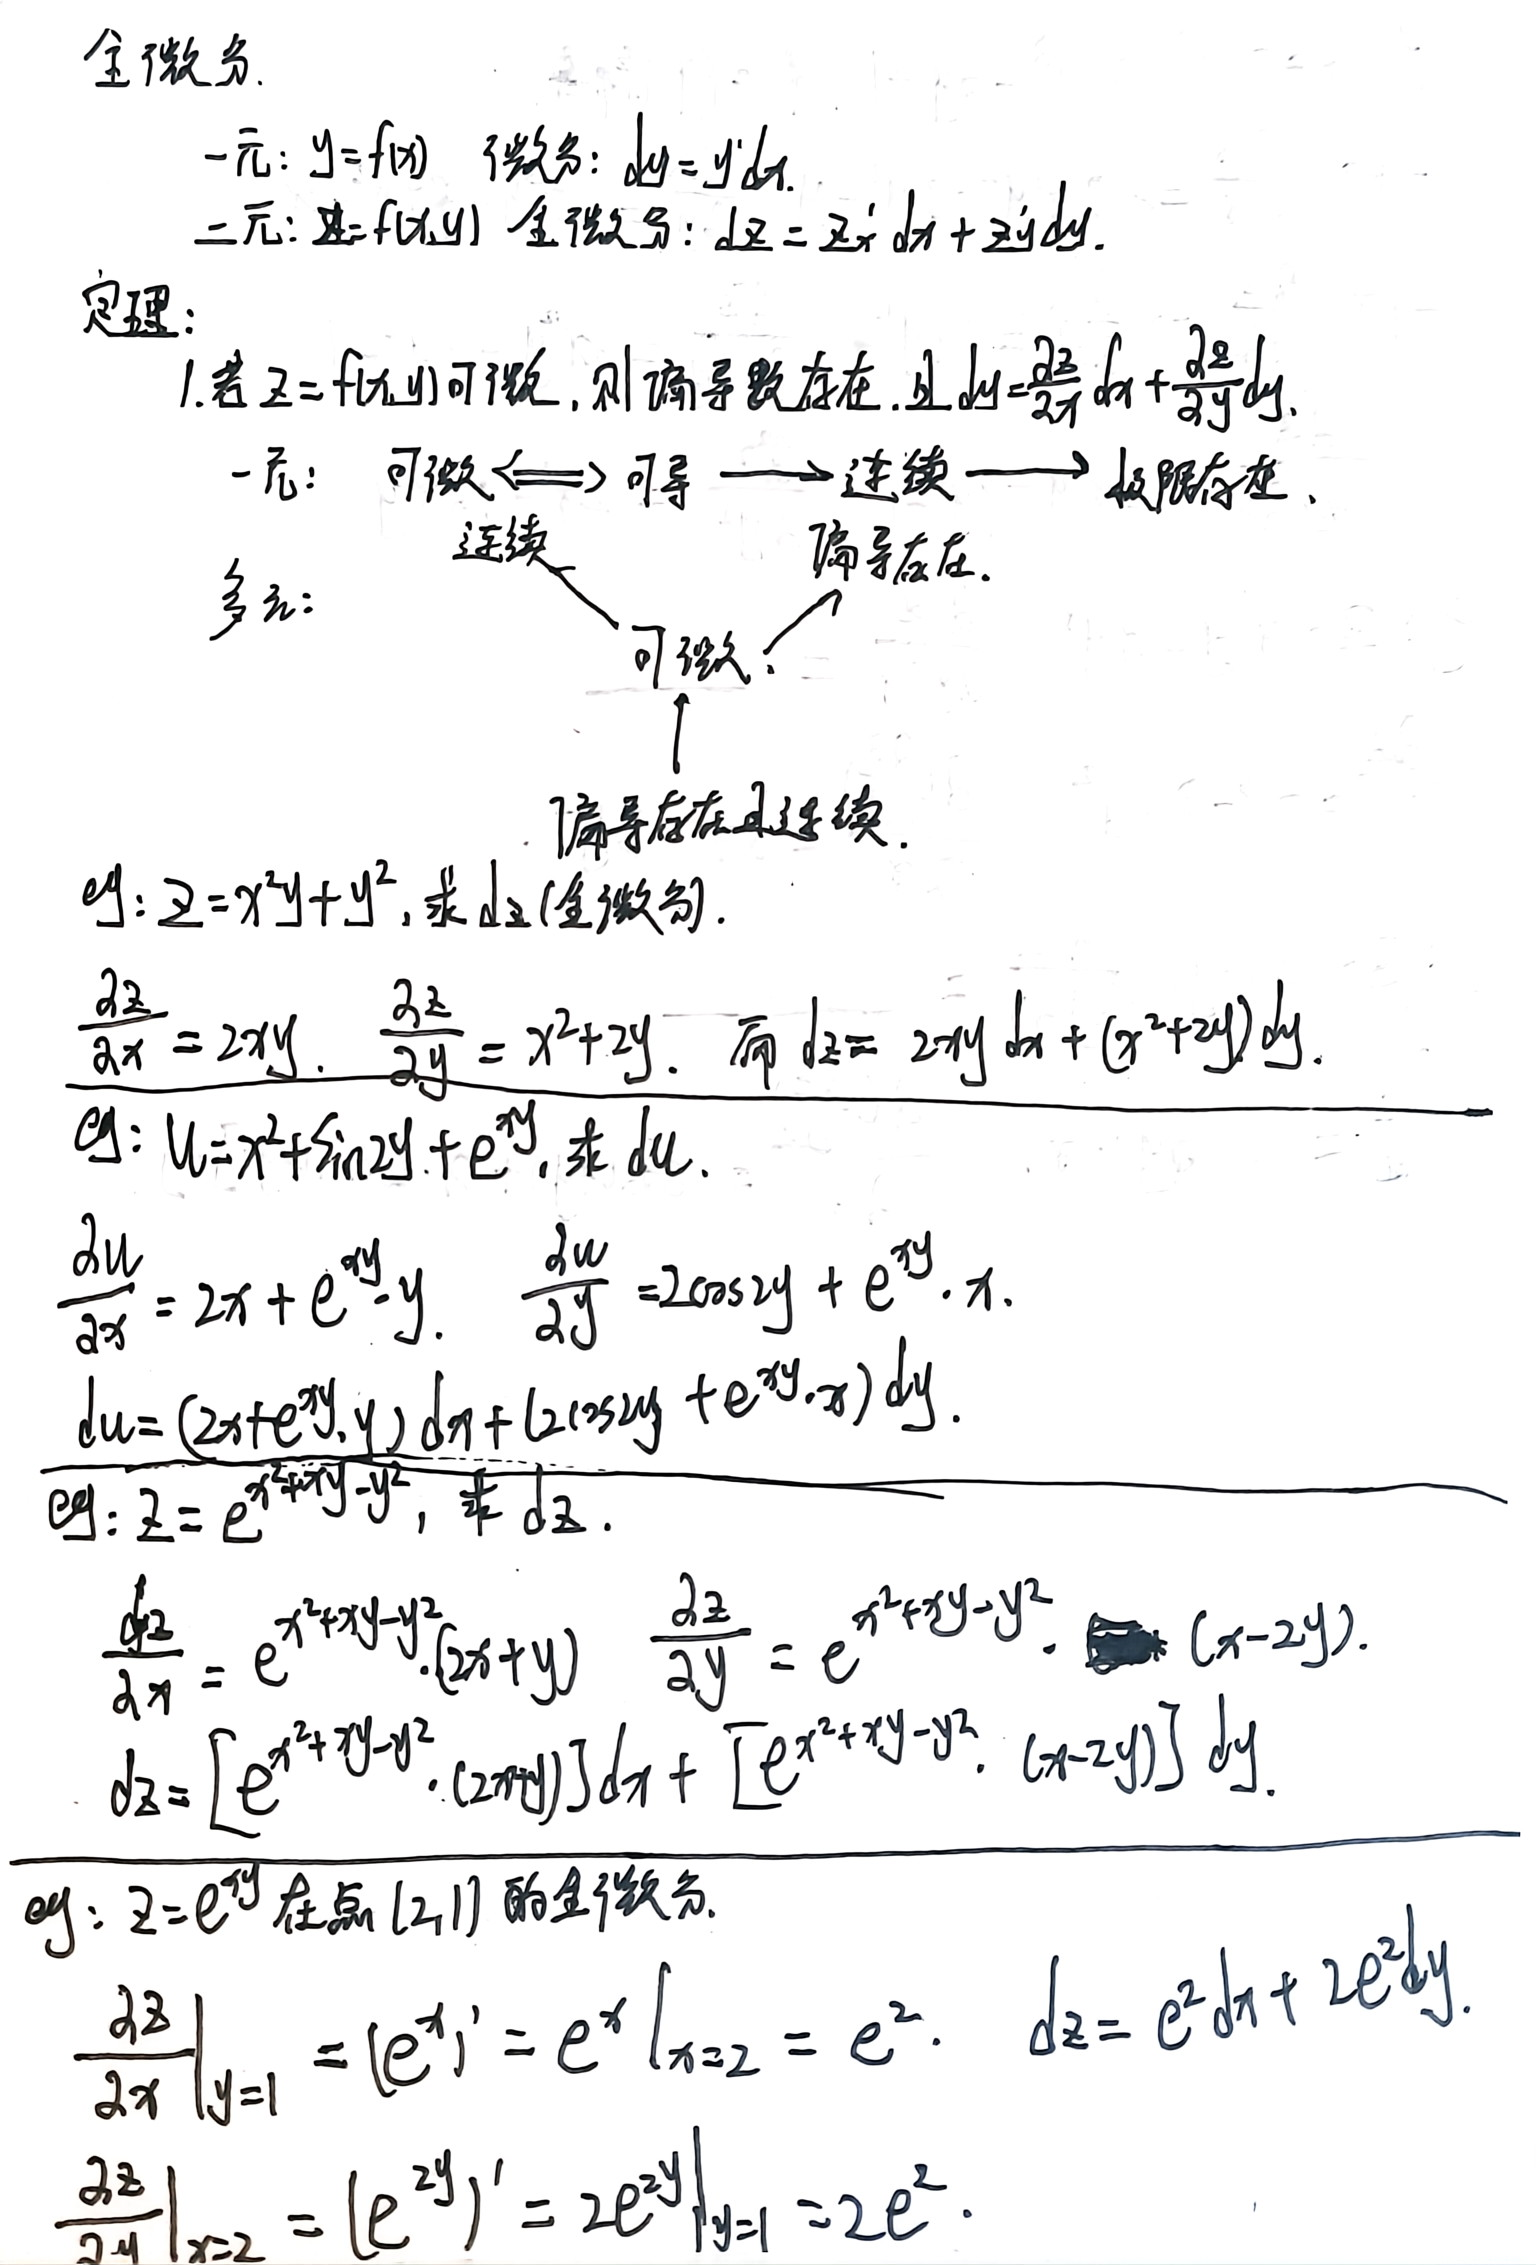 全微分.
一元: y=f(x) 微分: dy=y'dx.
二元: z=f(x,y) 全微分: dz=z'x dx+z'y dy.
定理:
1.若z=f(x,y)可微,则偏导数存在.且dy=∂z/∂x dx+∂z/∂y dy.
一元: 可微<=>可导→连续→极限存在.
连续 偏导存在.
多元:
可微.
偏导存在且连续.
eg: z=x²y+y², 求dz(全微分).
∂z/∂x=2xy. ∂z/∂y=x²+2y. 而 dz=2xy dx+(x²+2y)dy.
eg: u=x²+sin2y+e^{xy}, 求du.
∂u/∂x=2x+e^{xy}·y. ∂u/∂y=2cos2y+e^{xy}·x.
du=(2x+e^{xy}·y)dx+(2cos2y+e^{xy}·x)dy.
eg: z=e^{x²+xy-y²}, 求dz.
∂z/∂x=e^{x²+xy-y²}·(2x+y) ∂z/∂y=e^{x²+xy-y²}·(x-2y).
dz=[e^{x²+xy-y²}·(2x+y)]dx+[e^{x²+xy-y²}·(x-2y)]dy.
eg: z=e^{xy}在点(2,1)的全微分.
∂z/∂x|y=1 =(e^x)'=e^x|x=2 =e². dz=e²dx+2e²dy.
∂z/∂y|x=2 =(e^{2y})'=2e^{2y}|y=1 =2e².